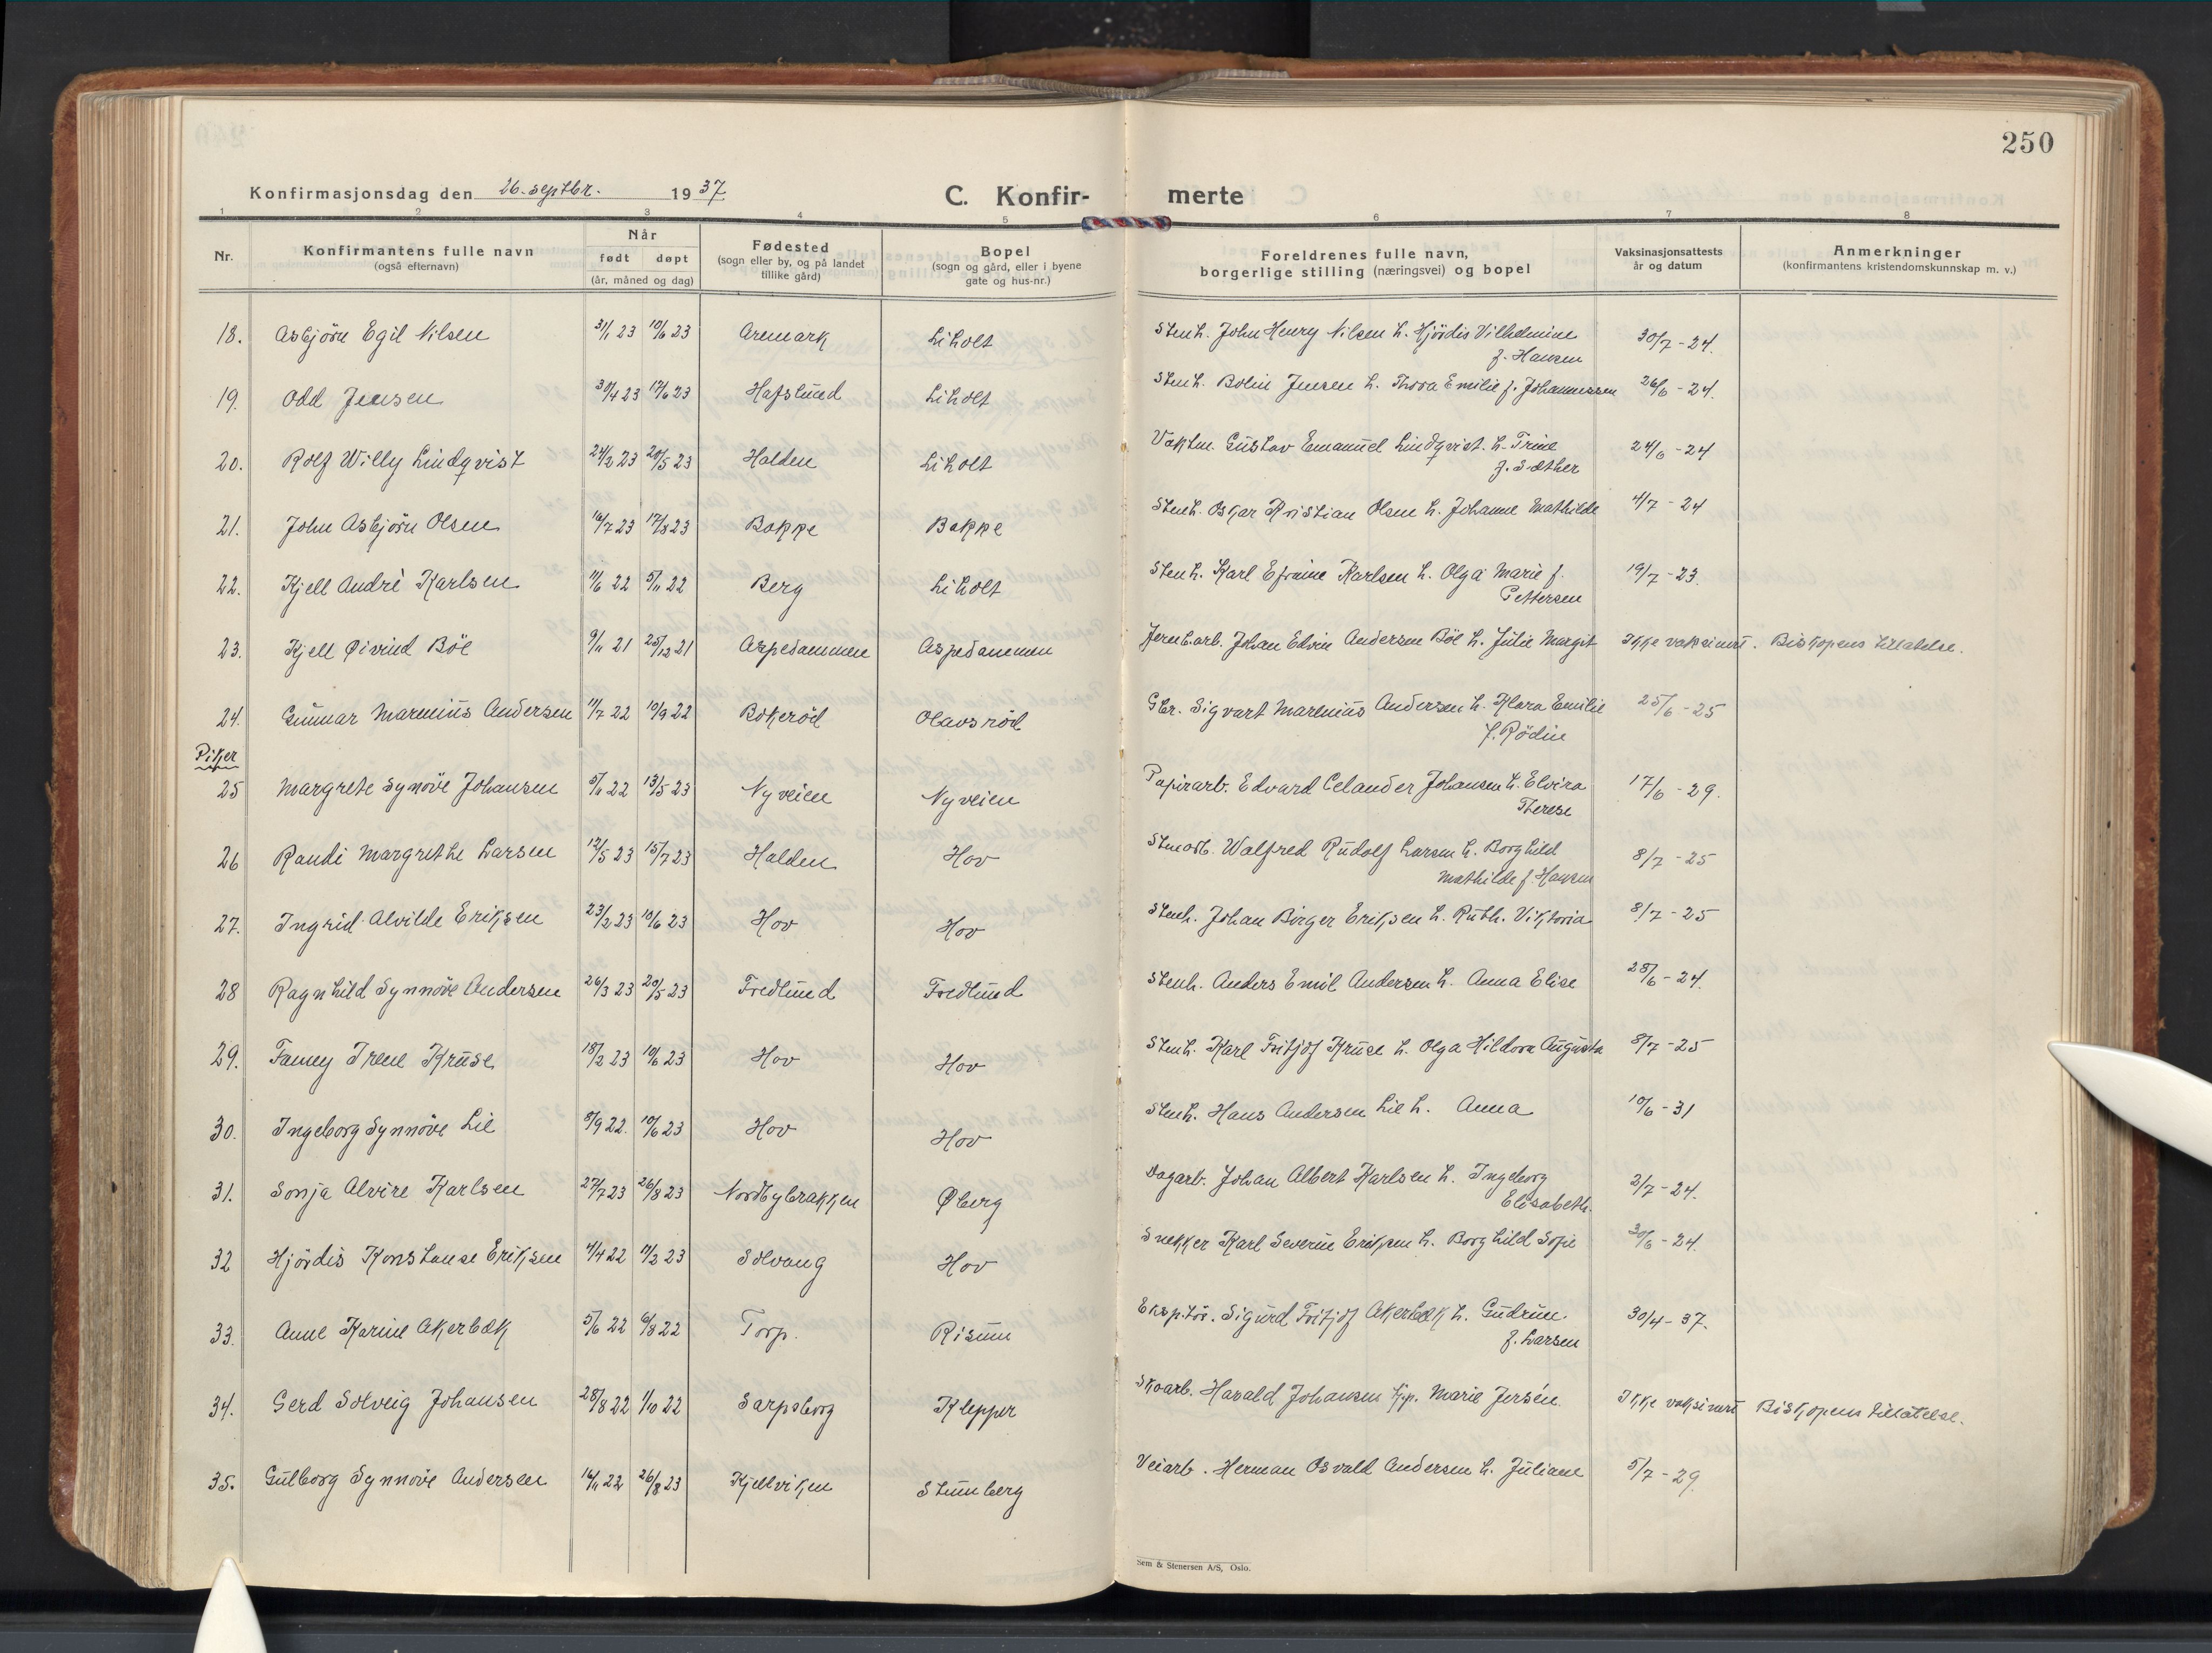 250
Konfirmasjonsdag den 26. septbr. 1937
C. Konfir- merte
1 2 3 4 5 6 7 8
Nr.
Konfirmantens fulle navn
(også efternavn)
Når
født døpt
(år, måned og dag)
Fødested
(sogn eller by, og på landet
tillike gård)
Bopel
(sogn og gård, eller i byene
gate og hus-nr.)
Foreldrenes fulle navn,
borgerlige stilling (næringsvei) og bopel
Vaksinasjonsattests
år og datum
Anmerkninger
(konfirmantens kristendomskunnskap m. v.)
18. Asbjörn Egil Nilsen 31/1 23 10/6 23 Aremark Liholt Stenh. John Henry Nilsen h. Hjördis Vilhelmine 30/7 - 24.
f. Hansen
19. Odd Jensen 30/4 23 17/6 23 Hafslund Liholt Stenh. Bolin Jensen h. Thora Emilie f. Johannessen 26/6 - 24.
20. Rolf Willy Lindqvist 24/2 23 20/5 23 Halden Liholt Vaktm. Gustav Emanuel Lindqvist. h. Trine 24/6 - 24
f. Sæther
21. John Asbjörn Olsen 16/7 23 17/8 23 Bakke Bakke Stenh. Oskar Kristian Olsen h. Johanne Mathilde 4/7 - 24
22. Kjell Andrè Karlsen 11/6 22 5/11 22 Berg Liholt Stenh. Karl Efraim Karlsen h. Olga Marie f. 19/7 - 23.
Pettersen
23. Kjell Øivind Böe 9/11 21 25/12 21 Aspedammen Aspedammen Jernb.arb. Johan Edvin Andersen Böe h. Julie Margit Ikke vaksinert. Biskopens tillatelse.
24. Gunnar Marenius Andersen 11/7 22 10/9 22 Bokeröd Olavsröd Gbr. Sigvart Marenius Andersen h. Klara Emilie 25/6 - 25
f. Rödin
Piker
25 Margrete Synöve Johansen 5/11 22 13/5 23 Nyveien Nyveien Papirarb. Edvard Celander Johansen h. Elvira 17/6 - 29.
Therese
26 Randi Margrethe Larsen 12/5 23 15/7 23 Halden Hov Stenarb. Walfred Rudolf Larsen h. Borghild 8/7 - 25
Mathilde f. Hansen
27. Ingrid Alvilde Eriksen 23/2 23 10/6 23 Hov Hov Stenh. Johan Birger Eriksen h. Ruth. Viktoria 8/7 - 25
28 Ragnhild Synnöve Andersen 26/3 23 20/5 23 Fredlund Fredlund Stenh. Anders Emil Andersen h. Anna Elise 28/6 - 24.
29. Fanny Irene Kruse 18/2 23 10/6 23 Hov Hov Stenh. Karl Fritjof Kruse h. Olga Hildora Augusta 8/7 - 25
30. Ingeborg Synnöve Lie 8/9 22. 10/6 23 Hov Hov Stenh. Hans Andersen Lie h. Anna 10/6 - 31
31. Sonja Alvire Karlsen 27/7 23 26/8 23 Nordbybrakken Øberg Dagarb. Johan Albert Karlsen h. Ingeborg 2/7 - 24.
Elisabeth.
32 Hjördis Konstanse Eriksen 4/4 22 11/2 23 Solvang Hov Snekker Karl Severin Eriksen h. Borghild Sofie 30/6 - 24.
33. Anne Karine Akerbæk 5/6 22 6/8 22 Torp. Risum Eksp.tör. Sigurd Fritjof Akerbæk h. Gudrun. 30/4 - 37.
f. Larsen
34. Gerd Solveig Johansen 28/8 22 1/10 22 Sarpsborg Klepper Skoarb. Harald Johansen Marie Jersén. Ikke vaksinert Biskopens tillatelse.
35. Gulborg Synnöve Andersen 16/11 22 26/8 23 Kjellviken Stumberg Veiarb. Herman Osvald Andersen h. Juliane 5/7 - 29.
Sem & Stenersen A/S, Oslo.